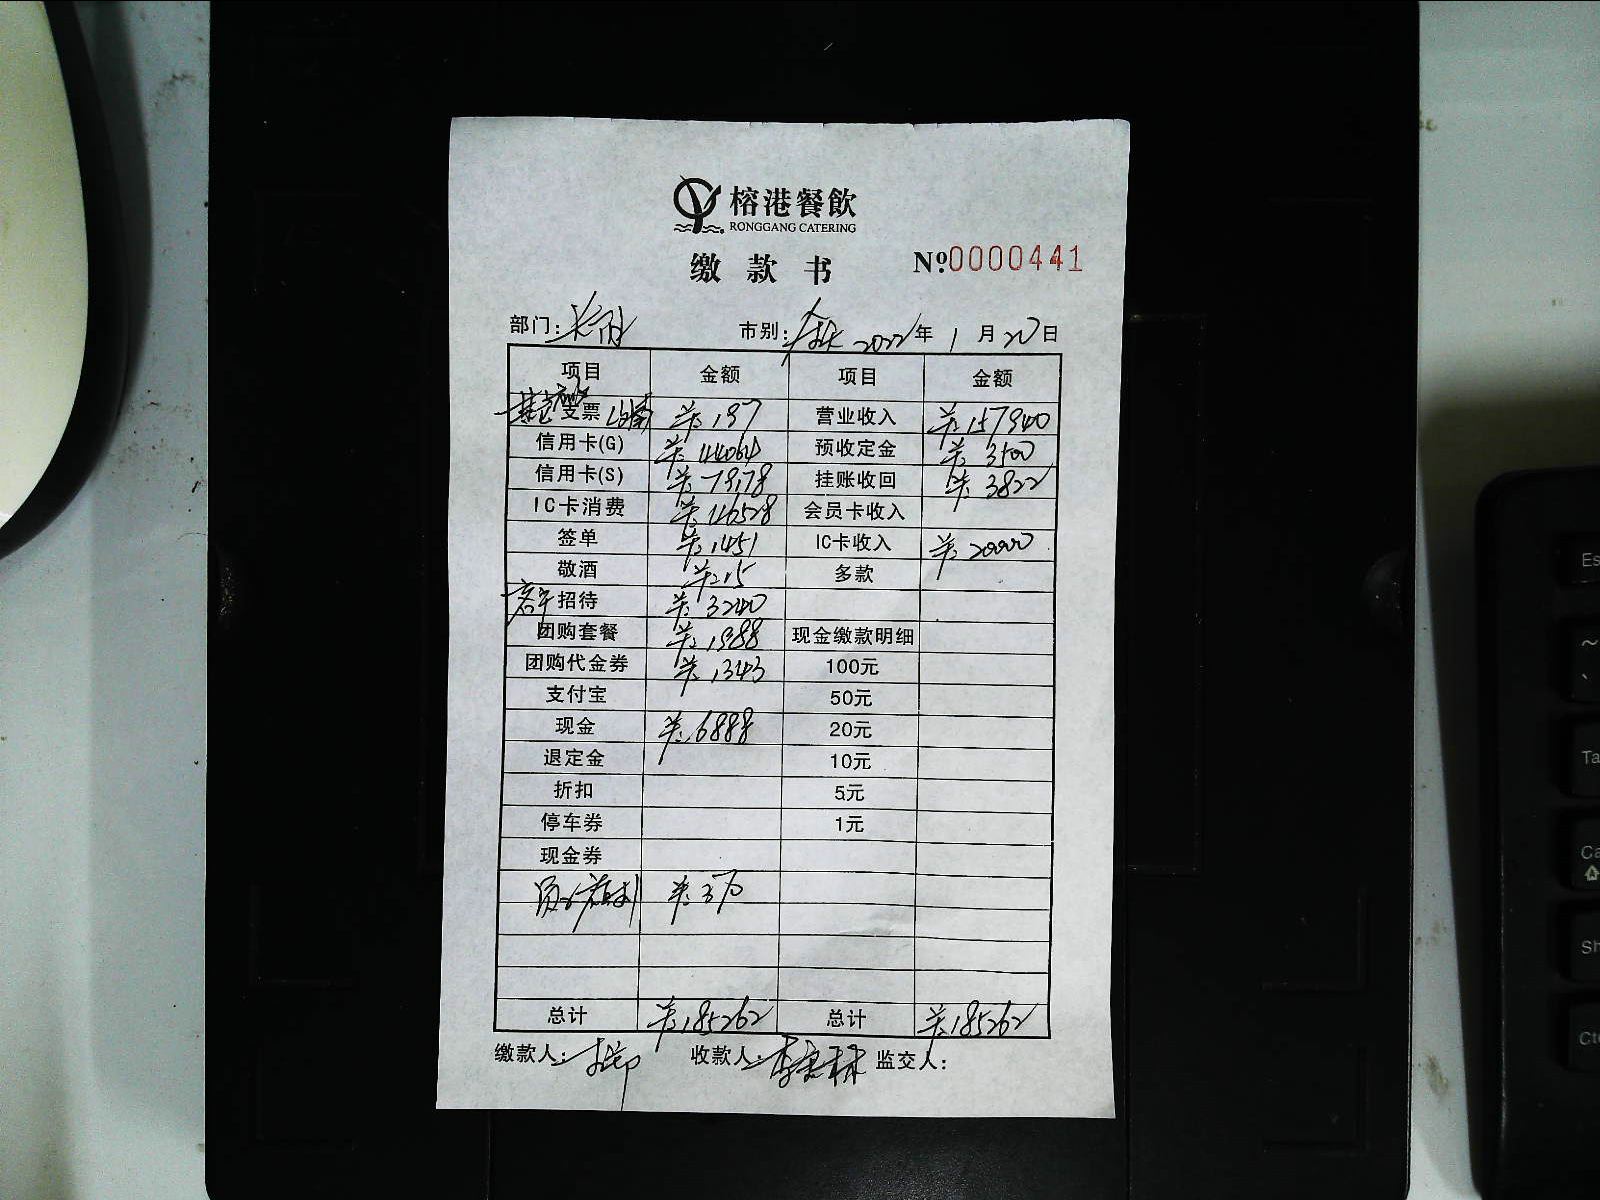 榕港餐飲
RONGGANG CATERING
缴款书 №0000441
部门: 市别: 2022年1月20日
项目 金额 项目 金额
支票 ¥:197 营业收入 ¥:157940
信用卡(G) ¥:44064 预收定金 ¥:3500
信用卡(S) ¥:79178 挂账收回 ¥:3822
IC卡消费 ¥:46528 会员卡收入
签单 ¥:1451 IC卡收入 ¥:20000
敬酒 ¥:15 多款
招待 ¥:3240
团购套餐 ¥:1988 现金缴款明细
团购代金券 ¥:1343 100元
支付宝 50元
现金 ¥:6888 20元
退定金 10元
折扣 5元
停车券 1元
现金券
¥:370
总计 ¥:185262 总计 ¥:185262
缴款人: 收款人: 监交人: